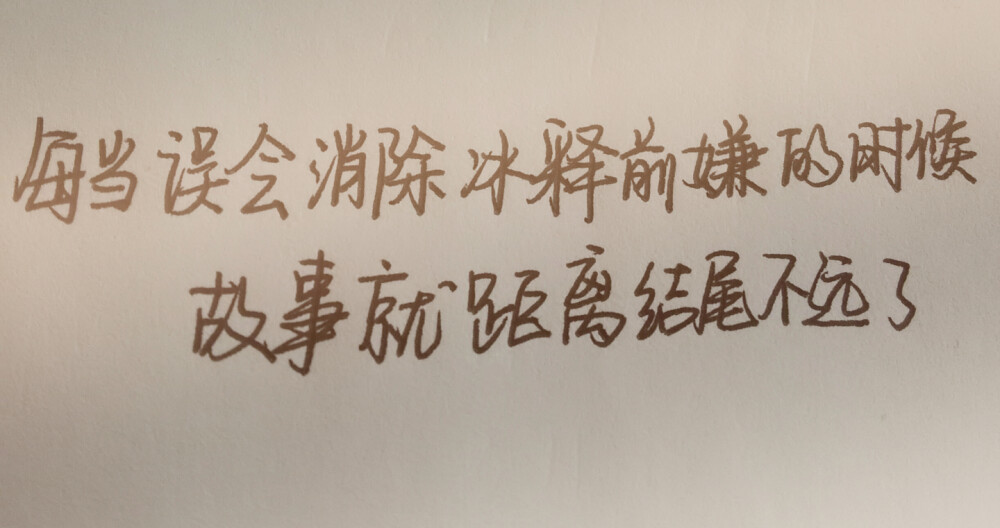 每当误会消除冰释前嫌的时候
故事就距离结尾不远了